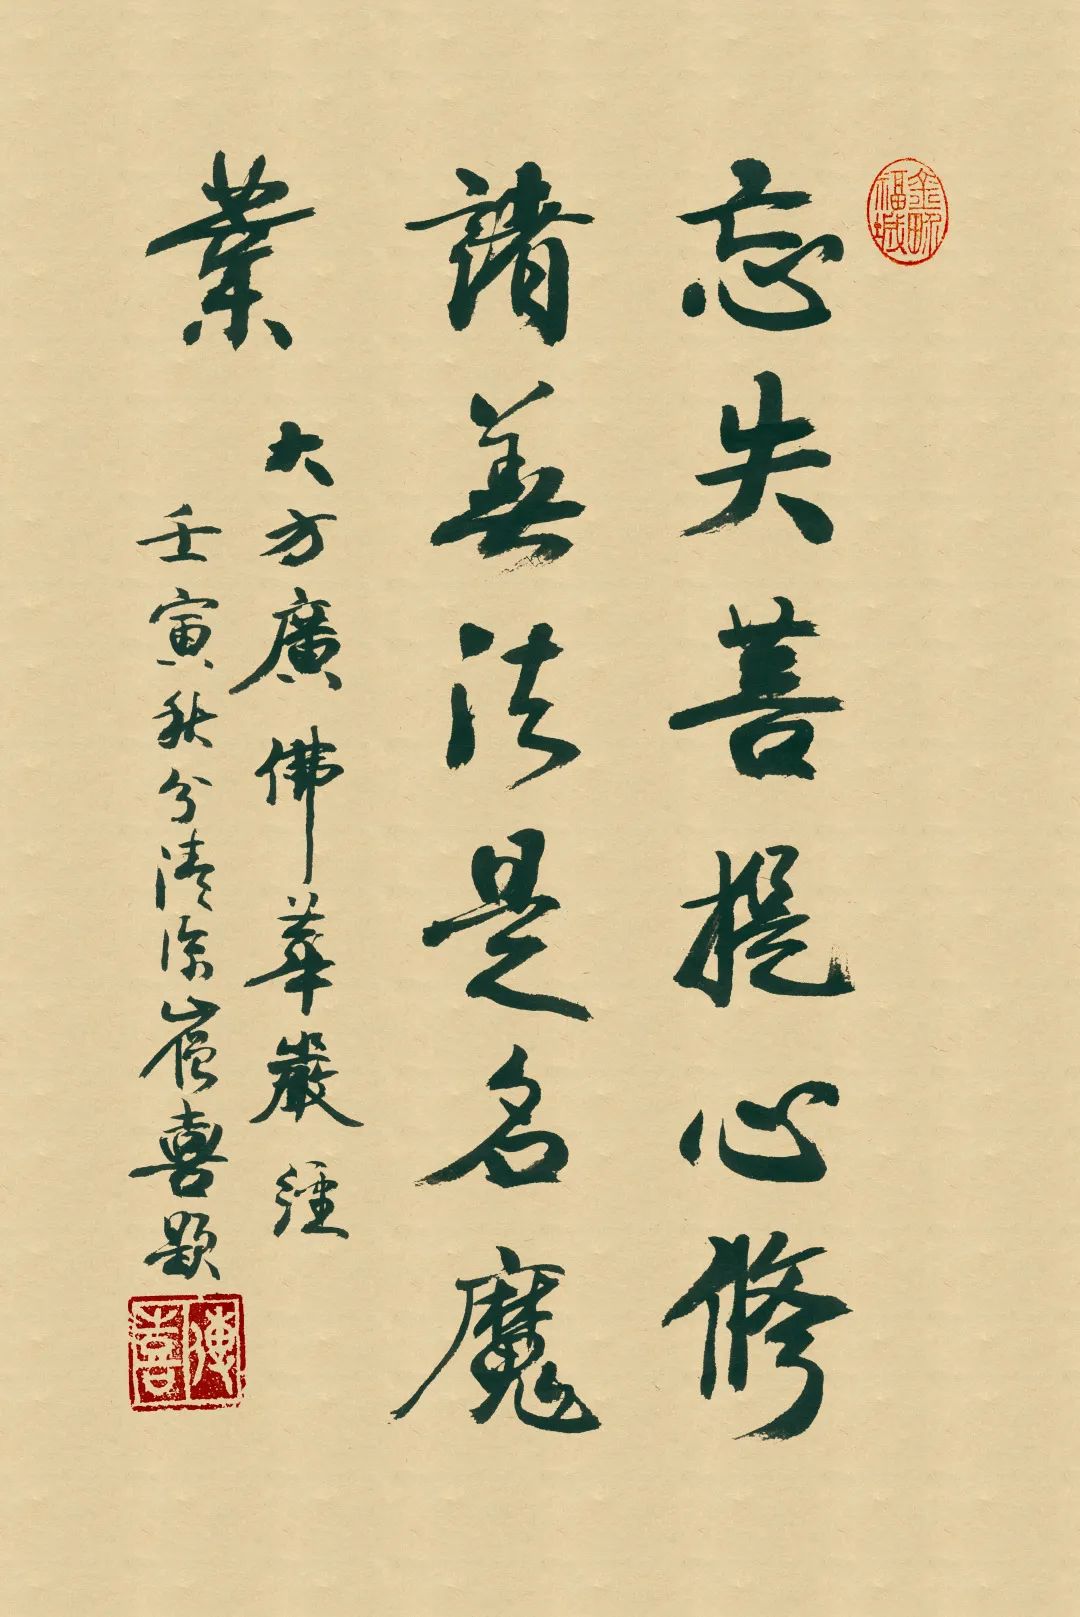 金畍福城
忘失菩提心修
諸善法是名魔
業
大方廣佛華嚴經
壬寅秋分清涼山僧喜題
傳喜